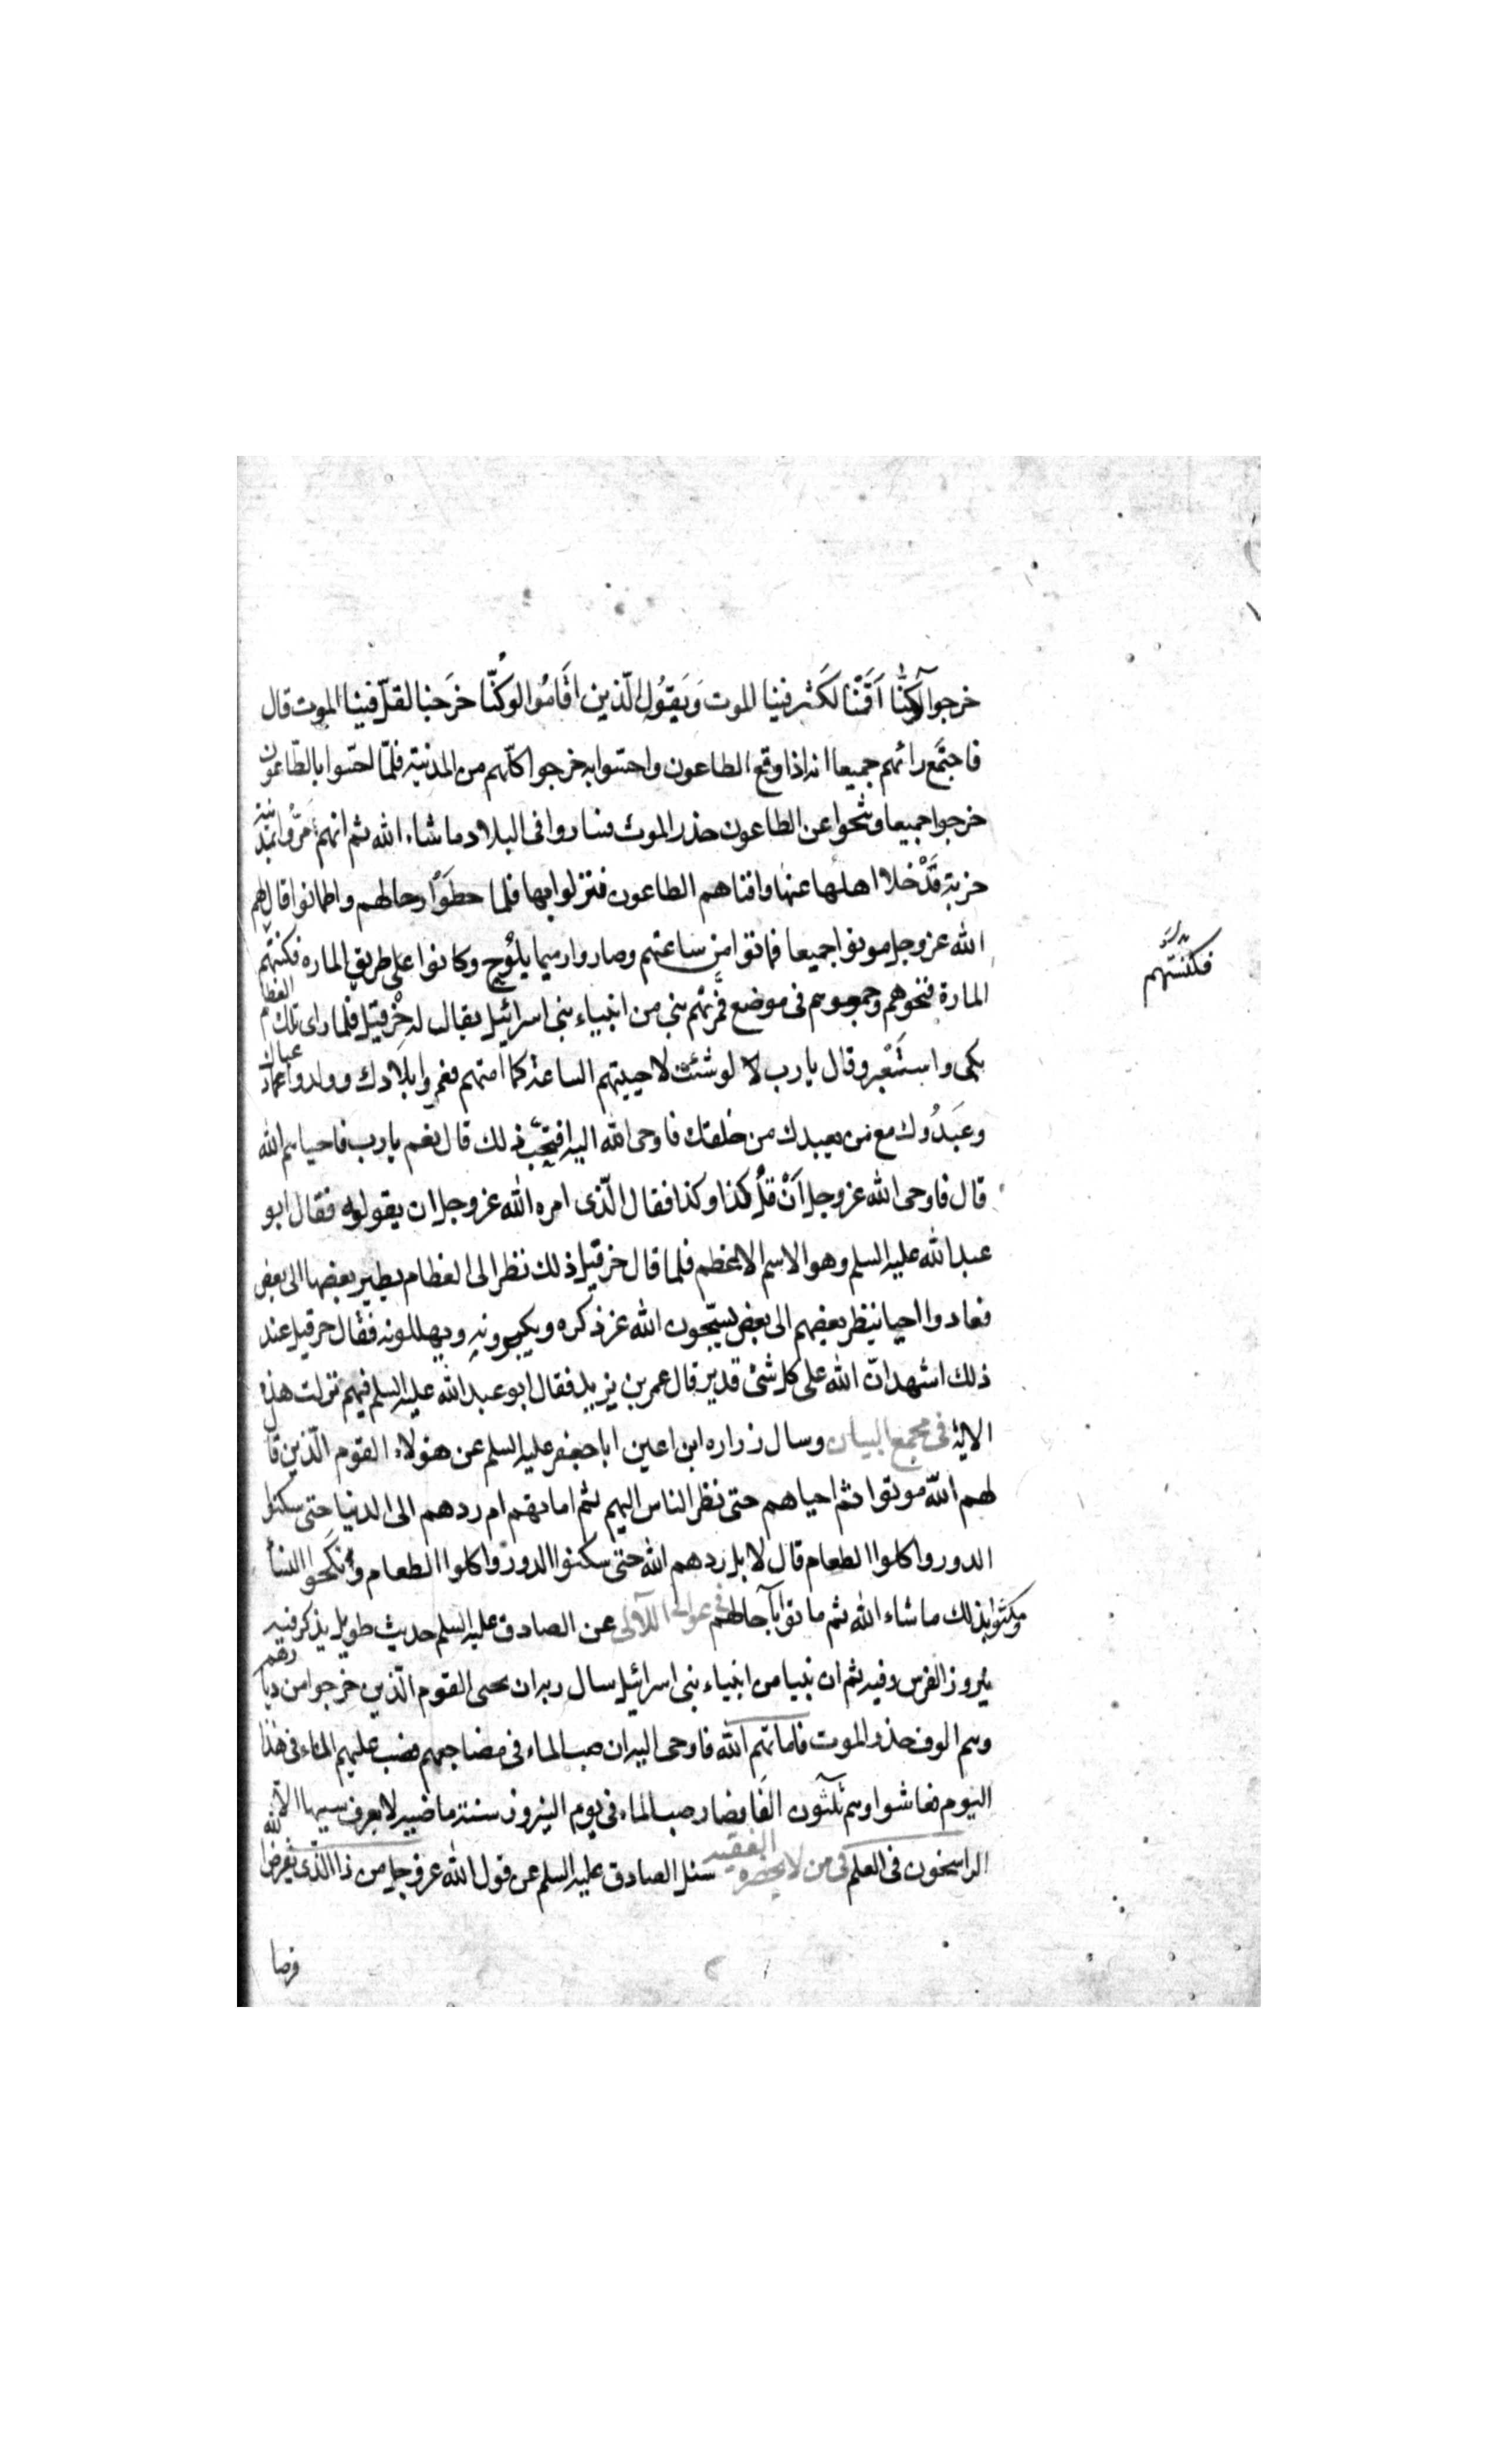 خرجوا لو كنّا اَقَمنا لَكَثر فينا الموت وَيَقُول الّذين اقَامُوا لو كُنّا خرَجنا لقلّ فينا الموت قال
فاجتَمع رائهم جميعا انه اذا وقع الطاعون واحسّوا به خرجوا كلّهم من المدنيته فلمّا احسّوا بالطّاعون
خرجوا جميعا وتنحوا عن الطاعون حذر الموت فساروا في البلاد ما شاء الله ثم انهم مرُّوا بمدينة
خربة قَدْ خلا اهلها عنها وافناهم الطاعون فنزلوا بها فلما حطوّا رحالهم واطمانوا قال لهم
الله عز وجل موتوا جميعا فماتوا من ساعتهم وصاروا رميما يلُوح وكانوا على طريق الماره فكنستهم
فكنستهم
المارة فنحوهم وجمعوهم في موضع فمَرّ بهم نبي من انبياء بني اسرائيل يقال له حِزْقيل فلما راى تلك العظام
بكى واستَعْبر وقال يا رب لو شئت لاحييتهم الساعة كما امتهم فعمروا بلادك وولدوا عبادك
وعَبَدُوك مع من يعبدك من خلقك فاوحى الله اليه افتحبّ ذلك قال نعم يا رب فاحياهم الله
قال فاوحى الله عز وجل اَنْ قلُ كذا وكذا فقال الّذى امره الله عز وجل ان يقوله فقال ابو
عبد الله عليه السلم وهو الاسم الاعظم فلما قال حزقيل ذلك نظر الى العظام يطير بعضها الى بعض
فعادوا احيا ينظر بعضهم الى بعض يسبّحون الله عز ذكره ويكبرونه ويهللونه فقال حزقيل عند
ذلك اشهد انّ الله على كل شئ قدير قال عمر بن يزيد فقال ابو عبد الله عليه السلم فيهم نزلت هذه
الاية في مجمع البيان وسال زراره ابن اعين ابا جعفر عليه السلم عن هولاء القوم الّذين قال
لهم الله موتوا ثم احياهم حتى نظر الناس اليهم ثم اماتهم ام ردهم الى الدنيا حتى سكنوا
الدور واكلوا الطعام قال لا بل ردهم الله حتى سكنوا الدور واكلوا الطعام ونكَحوا النسأ
ومكثوا بذلك ما شاء الله ثم ماتوا بآجالهم في عوالي اللآلى عن الصادق عليه السلم حديث طويل يذكر فيه
نيروز الفرس وفيه ثم ان نبيا من انبياء بنى اسرائيل سال ربه ان يحيى القوم الّذين خرجوا من ديارهم
وهم الوف حذر الموت فاماتهم الله فاوحى اليه ان صب الماء في مضاجعهم فصب عليهم الماء في هذا
اليوم فعاشوا وهم ثلثون الفَا فصار صب الماء في يوم النيروز سنة ماضيه لا يعرف سببها الا
الراسخون في العلم في من لا يحضره الفقيه سئل الصادق عليه السلم عن قول الله عز وجل من ذا الّذى يقرض الله
قرضا